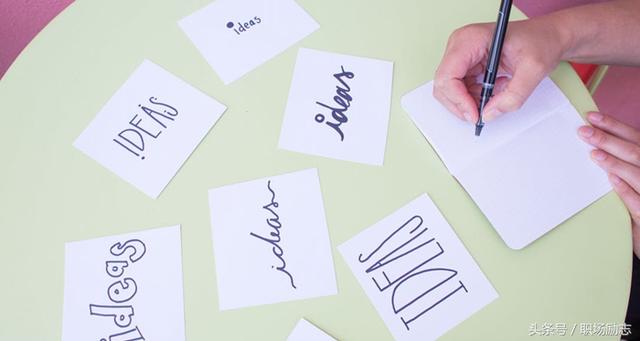 ideas
IDEAS
ideas
ideas
IDEAS
ideas
头条号 / 职场励志